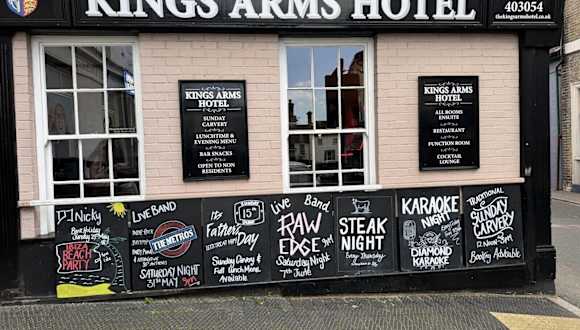 KINGS ARMS HOTEL
403054
thekingsarmshotel.co.uk
KINGS ARMS
HOTEL
SUNDAY
CARVERY
LUNCHTIME &
EVENING MENU
BAR SNACKS
OPEN TO NON
RESIDENTS
KINGS ARMS
HOTEL
ALL ROOMS
ENSUITE
RESTAURANT
FUNCTION ROOM
COCKTAIL
LOUNGE
DJ Nicky
Bank Holiday
Sunday
IBIZA
BEACH
PARTY
LIVE BAND
THE METROS
SATURDAY NIGHT
31ST MAY 9pm
Sunday
15th
It's
Fathers
Day
Sunday Carvery
Full Lunch Menu
Available
Live Band
RAW
EDGE 9pm
Saturday Night
7th June
STEAK
NIGHT
Every Thursday
KARAOKE
NIGHT
DIAMOND
KARAOKE
TRADITIONAL
SUNDAY
CARVERY
12 Noon-3pm
Booking Advisable